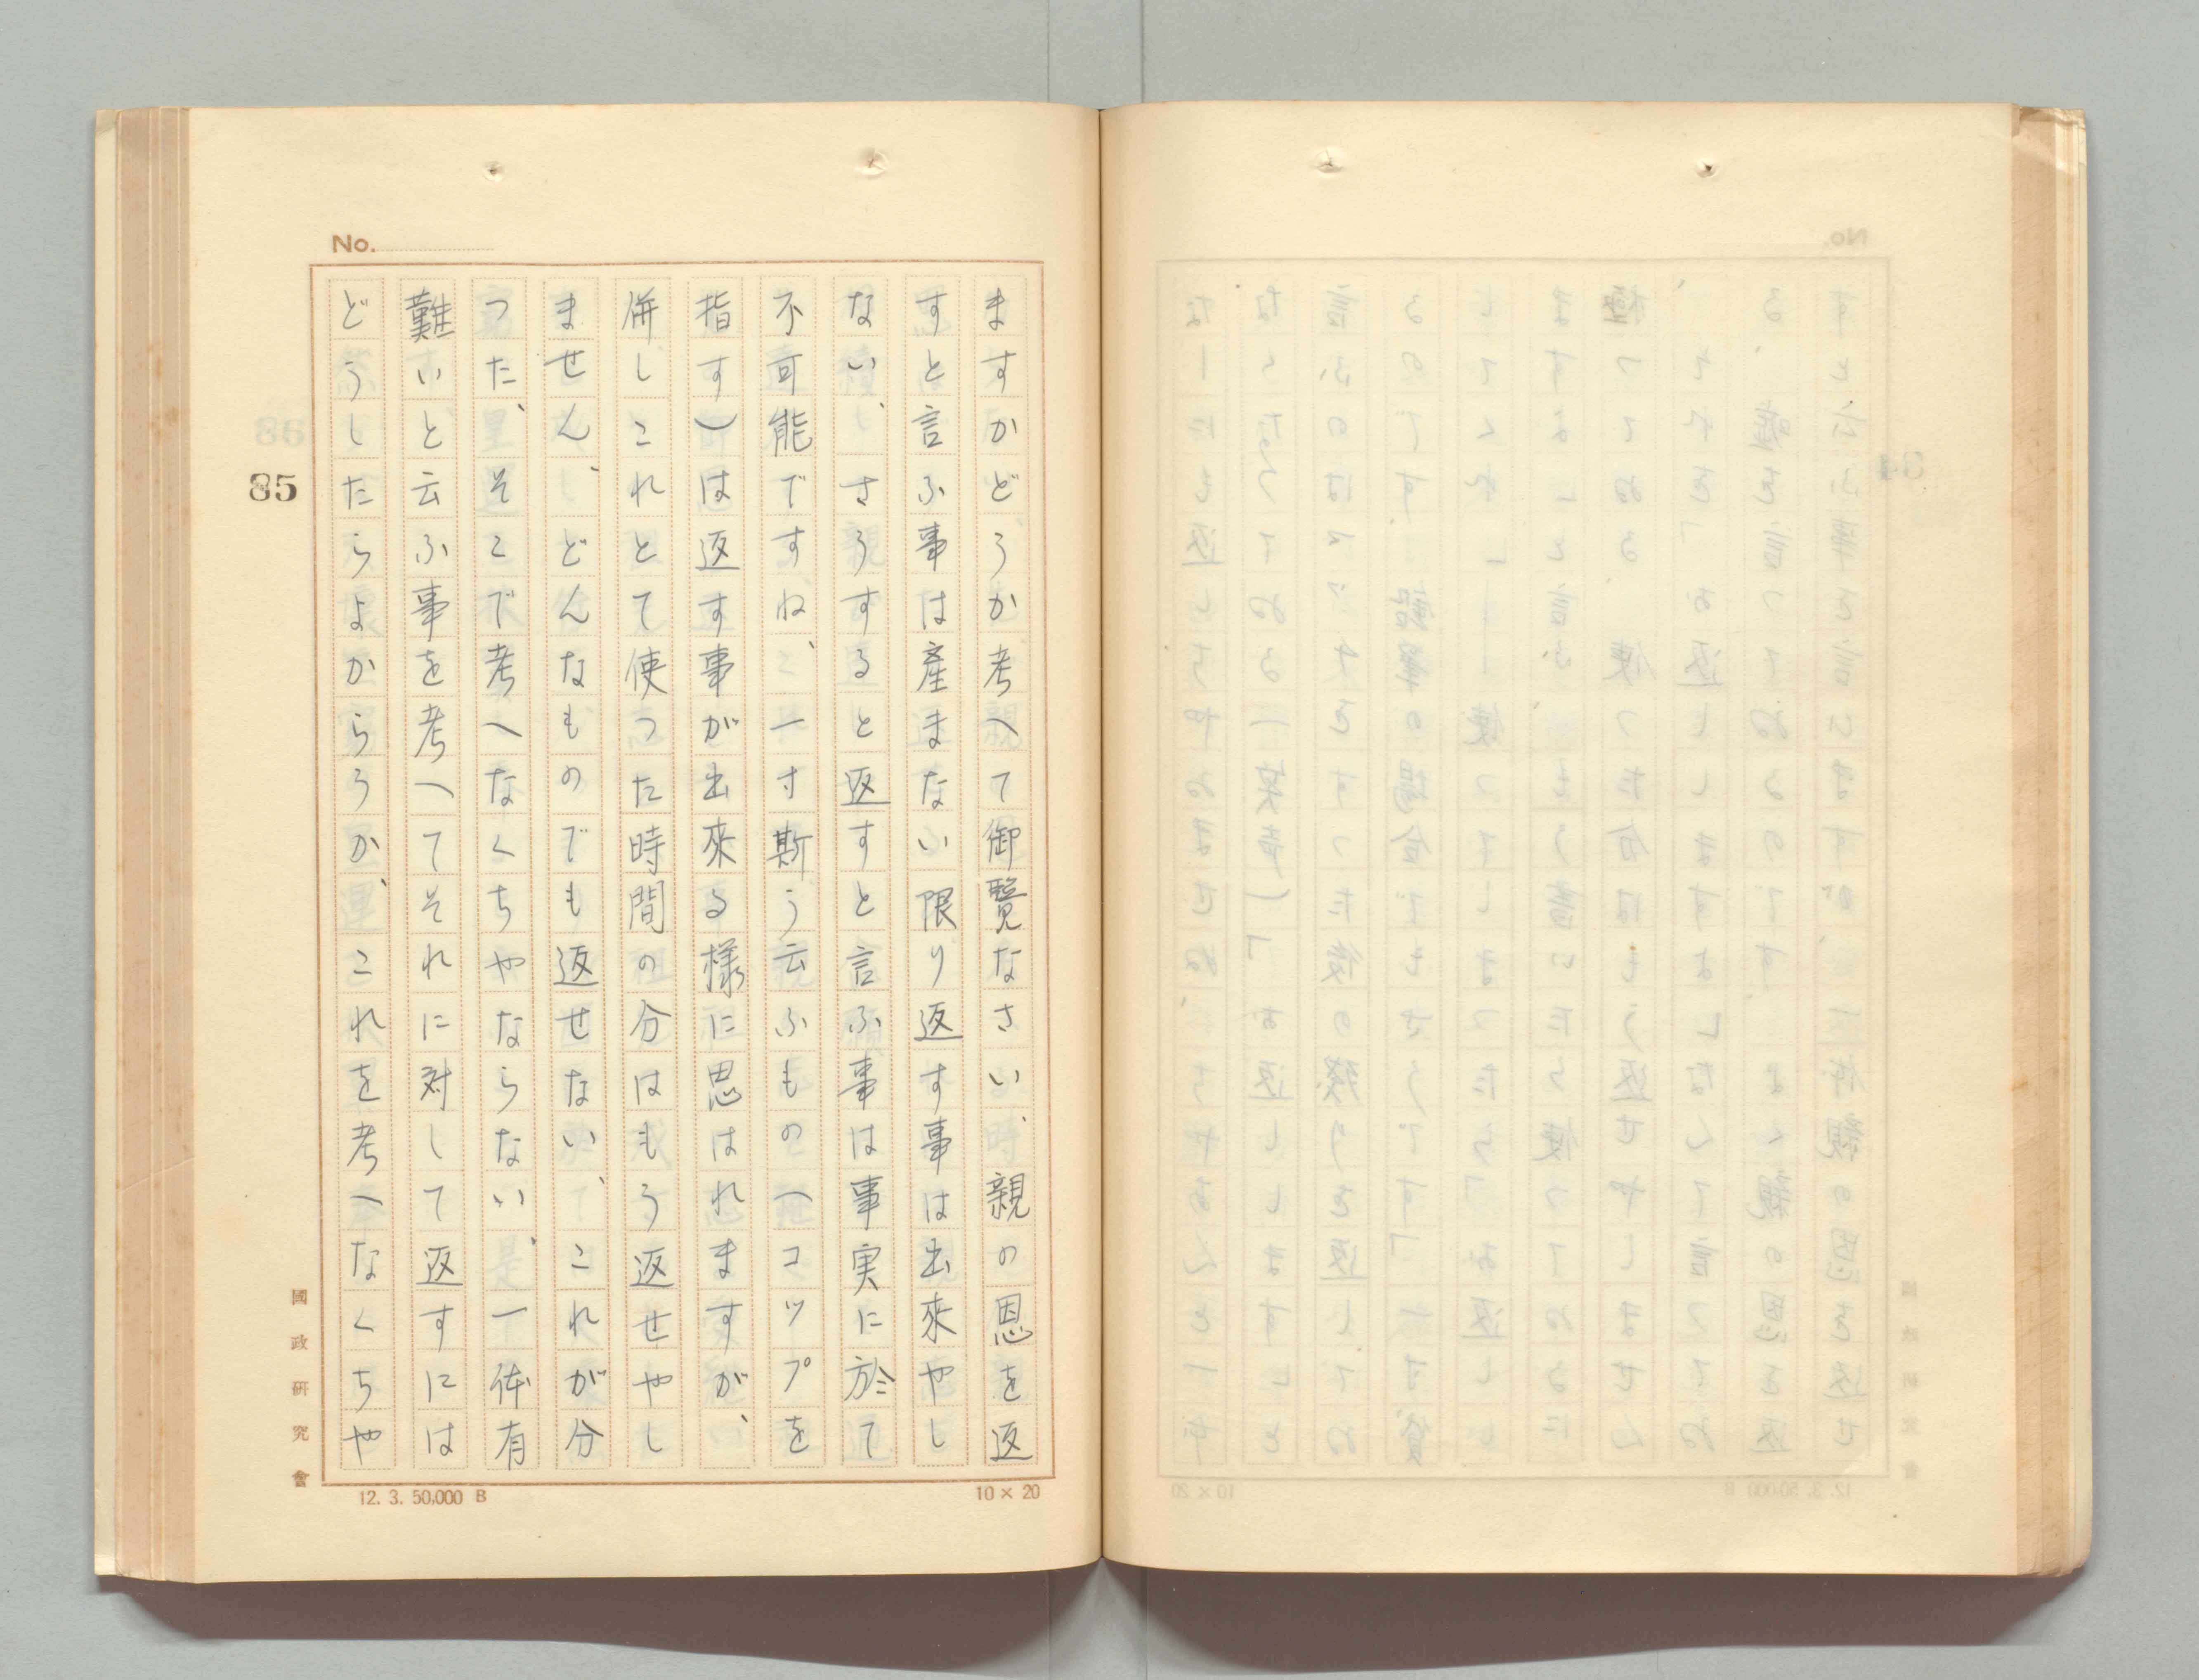 No.
ますかどうか考へて御覽なさい、親の恩を返
すと言ふ事は産まない限り返す事は出來やし
ない、さうすると返すと言ふ事は事実に於て
不可能ですね、一寸斯う云ふもの(コップを
指す)は返す事が出來る様に思はれますが、
併しこれとて使つた時間の分はもう返せやし
ません、どんなものでも返せない、これが分
つた、そこで考へなくちやならない、一体有
難いと云ふ事を考へてそれに対して返すには
どうしたらよからうか、これを考へなくちや
85
國政研究會
10×20
12. 3. 50,000 B